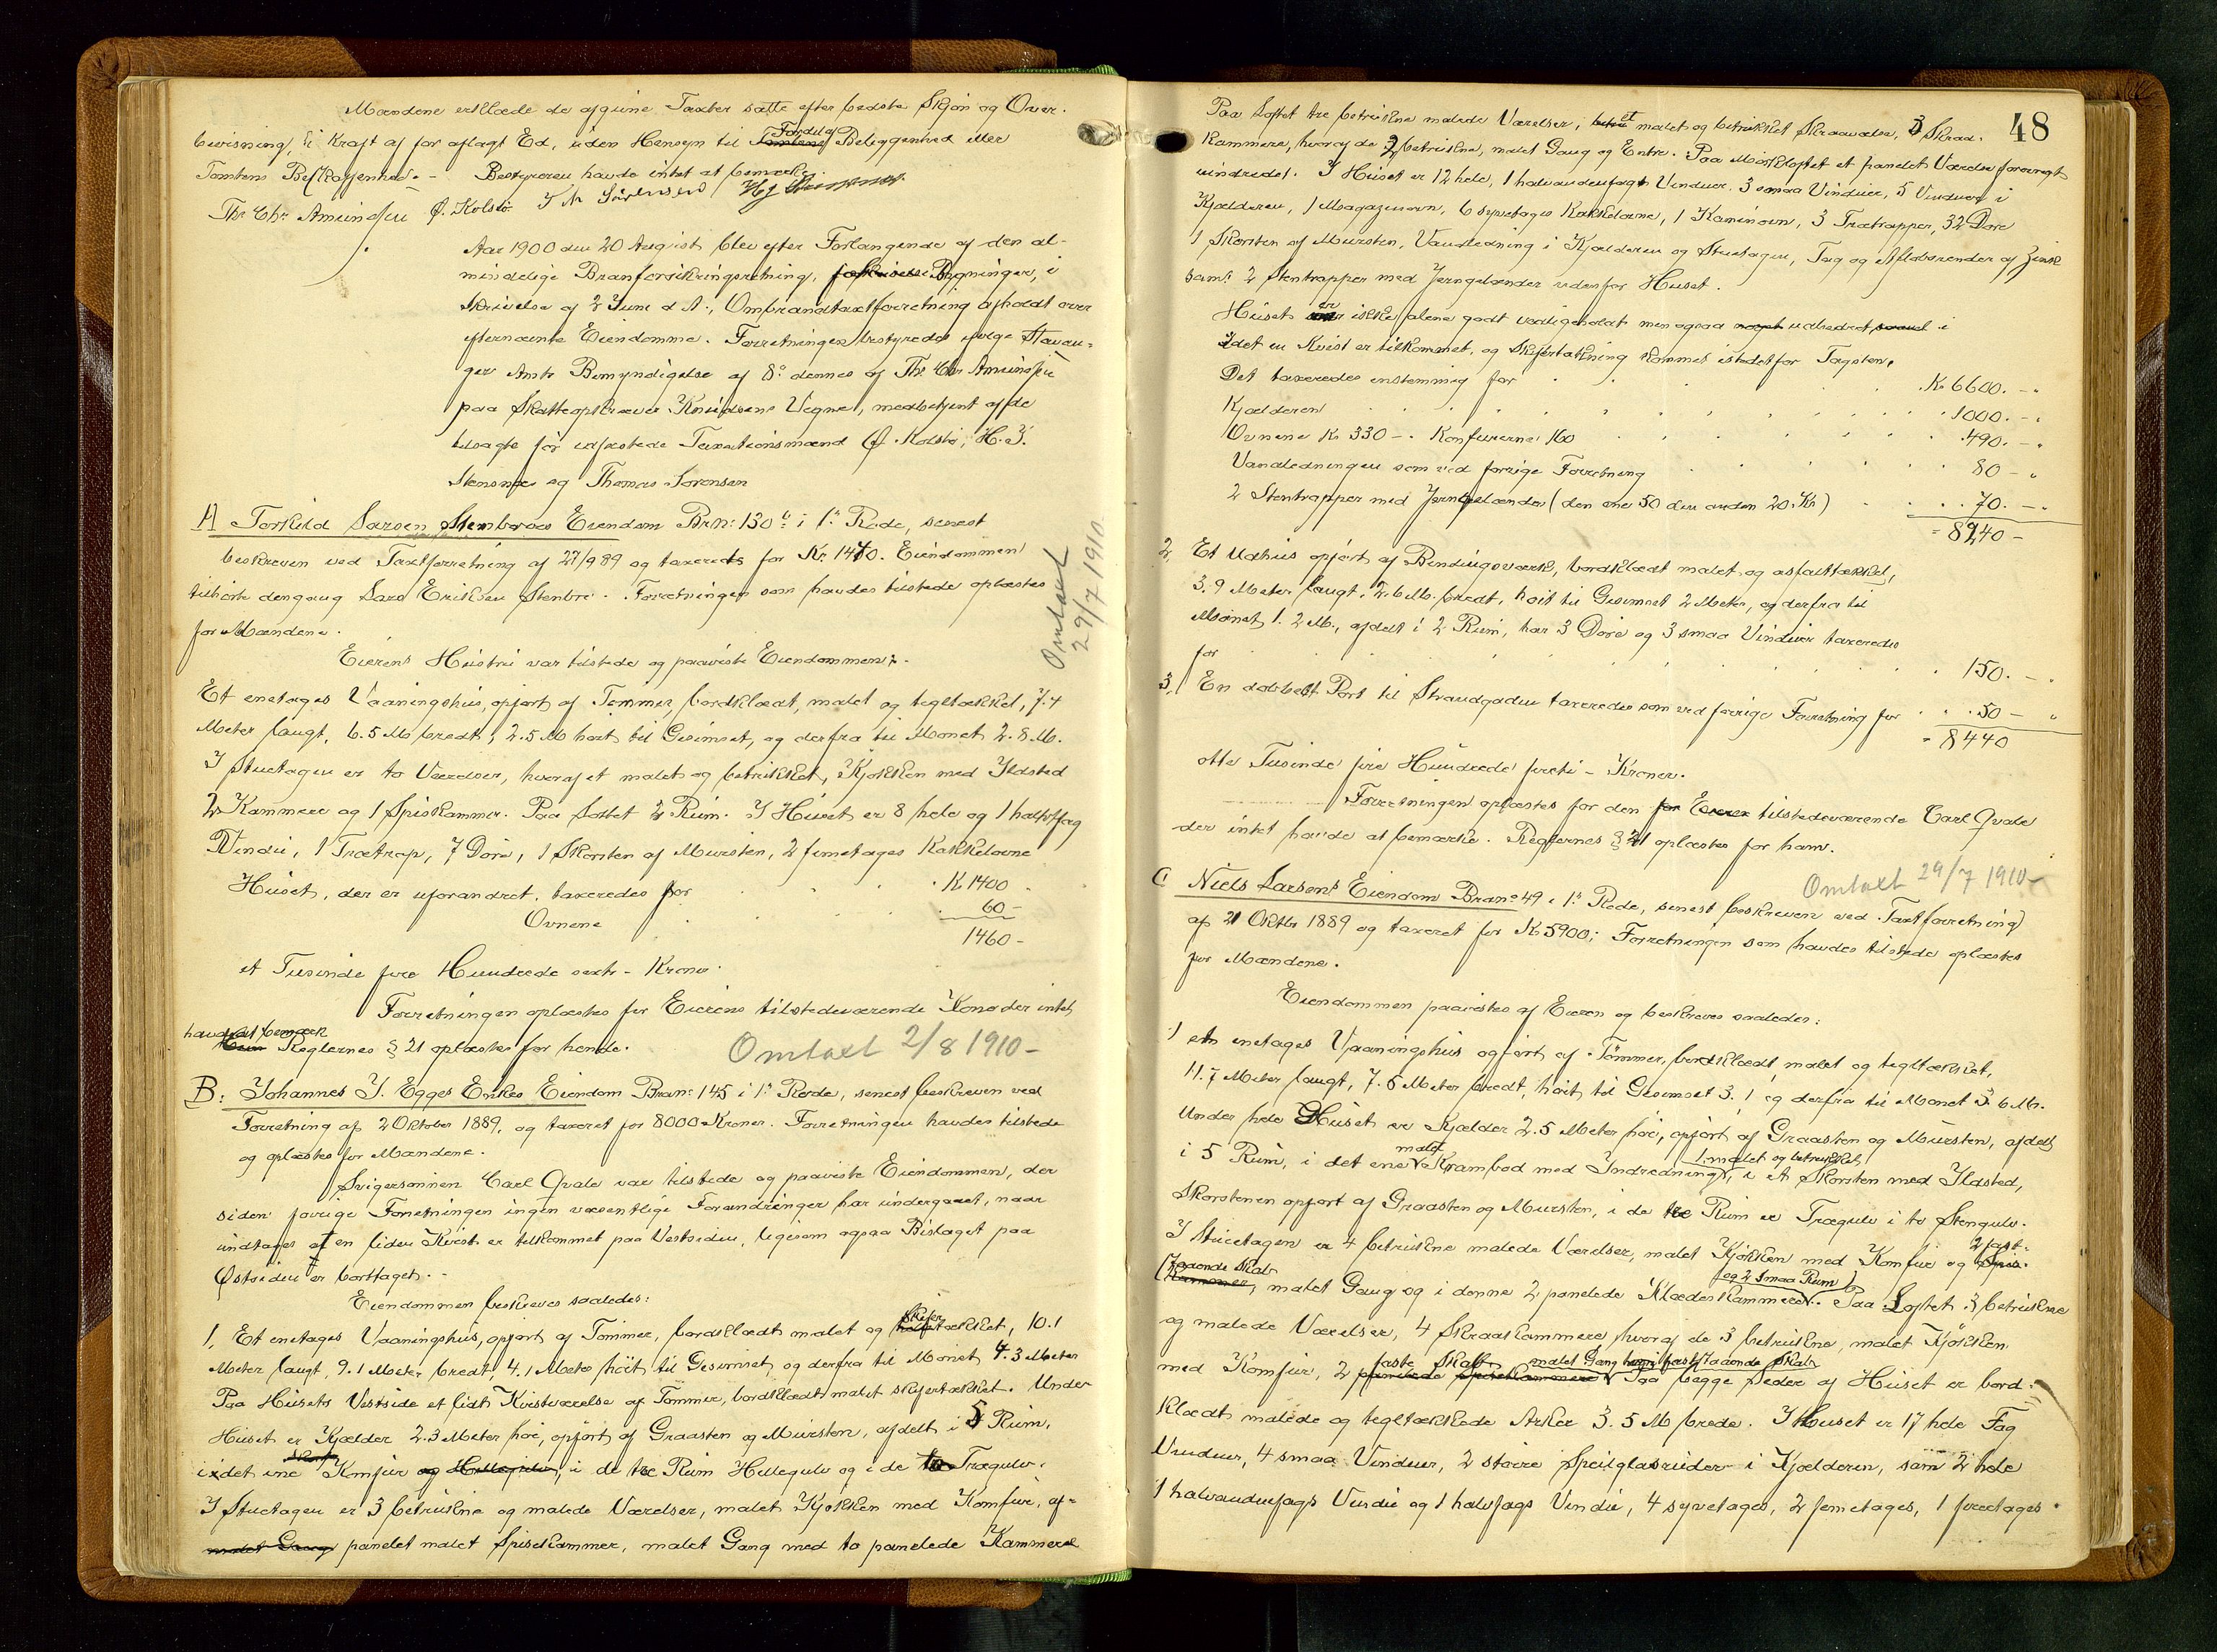 Mændene erklæde de afgivne Taxter satte efter bedste Skjøn og Over-
bevisning, i Kraft af før aflagt Ed, uden Hensyn til Tomtens Fordel af Beliggenhed eller
Tomtens Beskaffenhed. - Bestyreren havde intet at bemærke.
Th. Chr. Amundsen Ø. Kolstø T M Sørensen
Aar 1900 den 20 August blev efter Forlangende af den al-
mindelige Branforsikringsretning, for Bygninger, i
Skrivelse af 2 Juni d A., Ombrandtaxtforretning afholdt over
efternævnte Eiendomme. Forretningen bestyredes ifølge Stavan-
ger Amts Bemyndigelse af 8de dennes af Th. Chr Amundsen
paa Skatteopkræver Knudsens Vegne, medbetjent af de
tilsagte før edfæstede Taxationsmænd Ø. Kolstø, H. J.
Stensnæs og Thomas Sørensen
A Torkild Larsen Stembroes Eiendom Brn: 130 b i 1ste Rode, senest
beskreven ved Taxtforretning af 27/9 89 og taxeredes for Kr. 1470. Eiendommen
tilhørte dengang Lars Eriksen Stenbro. Forretningen som havdes tilstede oplæstes
for Mændene.
Omtaxt
29/7 1910
Eierens Hustru var tilstede og paaviste Eiendommen.
Et enetages Vaaningshus, opført af Tømmer, bordklædt, malet og tegltækket, 7.4
Meter langt, 6.5 M bredt, 2.5 M høit til Gesimset, og derfra til Mønet 2.8 M.
I Stuetagen er to Værelser, hvoraf et malet og betrukket, Kjøkken med Ildsted
2 Kammere og 1 Spiskammer. Paa Loftet 2 Rum. I Huset er 8 hele og 1 halvt fag
Vindu, 1 Trætrap, 7 Døre, 1 Skorsten af Mursten, 2 femetages Kakkelovne
Huset, der er uforandret, taxeredes for . . . Kr 1400 -
Ovnene . . . 60 -
1460 -
et Tusinde fire Hundrede sexti - Kroner.
Forretningen oplæstes for Eierens tilstedeværende Kone der intet
havde at bemærk Reglernes § 21 oplæstes for hende.
Omtaxt 2/8 1910 -
B: Johannes J. Egges Enkes Eiendom Bran: 145 i 1ste Rode, senest beskreven ved
Forretning af 2 Oktober 1889, og taxeret for 8000 Kroner. Forretningen havdes tilstede
og oplæstes for Mændene.
Svigersønnen Carl Qvale var tilstede og paaviste Eiendommen, der
siden forrige Forretningen ingen væsentlige Forandringer har undergaaet, naar
undtages at en liden Kvist er tilkommet paa Vestsiden, ligesom ogsaa Bislaget paa
Østsiden er borttaget. -
Eiendommen beskreves saaledes:
1, Et enetages Vaaningshus, opført af Tømmer, bordklædt malet og skifertækket, 10.1
Meter langt, 9.1 Meter bredt, 4.1 Meter høit til Gesimset, og derfra til Mønet 4.3 Meter
Paa Husets Vestside et lidt Kvistværelse af Tømmer, bordklædt malet skifertækket. Under
Huset er Kjælder 2.3 Meter høi, opført af Graasten og Mursten, afdelt i 5 Rum,
i det ene Komfur og Hellegulv, i de tre Rum Hellegulv og i de to Trægulv.
I Stuetagen er 3 betrukne og malede Værelser, malet Kjøkken med Komfur, af-
malet Gang panelet malet Spisekammer, malet Gang med to panelede Kammere
48
Paa Loftet tre betrukne malede Værelser, et malet og betrukket Skraaværelse, 3 Skraa-
kammere, hvoraf de 2 betrukne, malet Gang og Entre. Paa Mørkloftet et panelet Værelse forøvrigt
uindredet. I Huset er 12 hele, 1 halvandenfags Vinduer, 3 smaa Vinduer, 5 Vinduer i
Kjælderen, 1 Magazinovn, 6 syvetages Kakkelovne, 1 Kaminovn, 3 Trætrapper, 32 Døre
1 Skorsten af Mursten, Vandledning i Kjælderen og Stuetagen, Tag og Afløbsrender af Zink
samt 2 Stentrapper med Jerngelænder udenfor Huset.
Huset er ikke alene godt vedligeholdt men ogsaa noget udbedret i
idet en Kvist er tilkommet, og Skifertækning kommet istedetfor Tagsten,
Det taxeredes enstemmig for . . . Kr 6600. -
Kjælderen . . . 1000. -
Ovnene Kr 330 -. Komfurerne 160 . . . 490. -
Vandledningen som ved forrige Forretning . . . 80 -
2 Stentrapper med Jerngelænder (den ene 50 den anden 20. Kr) . . . 70. -
8240 -
2, Et Udhus opført af Bindingsværk, bordklædt malet og asfalttækket,
3.9 Meter langt, 2.6 M. bredt, høit til Gesimset 2 Meter, og derfra til
Mønet 1.2 M., afdelt i 2 Rum, har 3 Døre og 3 smaa Vinduer taxeredes
for . . . 150. -
3, En dobbelt Port til Strandgaden taxeredes som ved forrige Forretning for . . . 50 -
8440
otte Tusinde fire Hundrede firti - Kroner.
Forretningen oplæstes for den for Eieren tilstedeværende Carl Qvale
der intet havde at bemærke. Reglernes § 21 oplæstes for ham.
Omtaxt 29/7 1910 -
C Niels Larsens Eiendom Bran: 49 i 1ste Rode, senest beskreven ved Taxtforretning
af 21 Oktbr 1889 og taxeret for Kr 5900; Forretningen som havdes tilstede oplæstes
for Mændene.
Eiendommen paavistes af Eieren og beskreves saaledes:
1 et enetages Vaaningshus opført af Tømmer, bordklædt, malet og tegltækket,
11.7 Meter langt, 7.5 Meter bredt, høit til Gesimset 3.1 og derfra til Mønet 3.6 M.
Under hele Huset er Kjælder 2.5 Meter høi, opført af Graasten og Mursten, afdelt
i 5 Rum, i det ene malet Krambod med Indredning, 1 malet og betrukket, i et Skorsten med Ildsted,
Skorstenen opført af Graasten og Mursten, i de tre Rum er Trægulv i to Stengulv.
I Stuetagen er 4 betrukne malede Værelser, malet Kjøkken med Komfur og 2 fast-
staaende Skab, malet Gang og i denne 2 panelede Klædeskammere og 2 smaa Rum. Paa Loftet 3 betrukne
og malede Værelser, 4 Skraakammere hvoraf de 3 betrukne, malet Kjøkken
med Komfur, 2 faste Skabe malet Gang faststaaende Skab Paa begge Sider af Huset er bord-
klædt malede og tegltækkede Arker 3.5 M brede. I Huset er 17 hele Fag
Vinduer, 4 smaa Vinduer, 2 større Speilglasruder i Kjælderen, sam 2 hele
1 halvandenfags Vindu og 1 halvfags Vindu, 4 syvetages, 2 femetages, 1 treetages